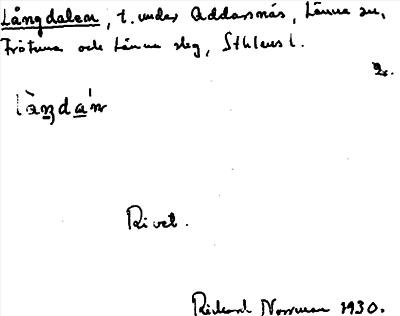 Långdalen, t. under Addarsnäs, Länna sn,
Frötuna och Länna slg, Sthlms l.
làŋdáṇ
Rivet.
Rickard Norrman 1930.